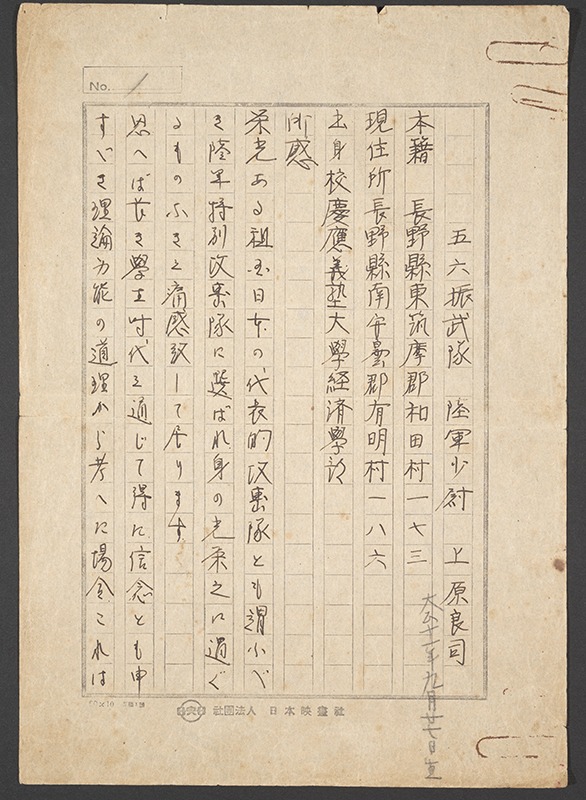 No. 1
五六振武隊 陸軍少尉 上原良司
本籍 長野縣東筑摩郡和田村一七三
現住所長野縣南安曇郡有明村一八六
大正十一年九月廿七日生
出身校慶應義塾大學経済學部
所感
栄光ある祖国日本の代表的攻撃隊とも謂ふべ
き陸軍特別攻撃隊に選ばれ身の光栄之に過ぐ
るものなきと痛感致して居ります
思へば長き學生時代を通じて得た信念とも申
すべき理論万能の道理から考へた場合これは
社團法人 日本映畫社